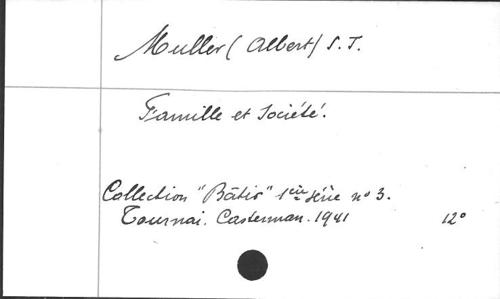 Muller (Albert) S.J.
Famille et Société.
Collection "Bâtir" 1ère série n° 3.
Tournai. Casterman. 1941 12°